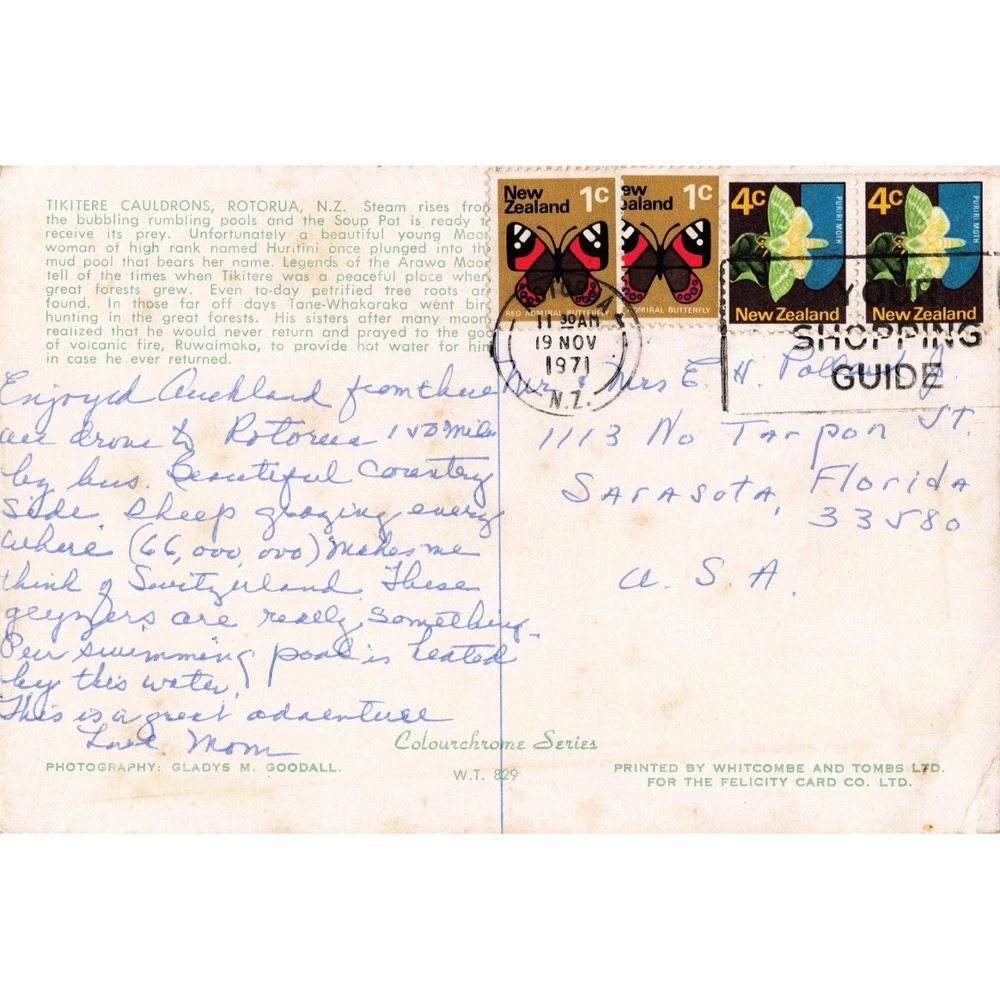 TIKITERE CAULDRONS, ROTORUA, N.Z. Steam rises fro
the bubbling rumbling pools and the Soup Pot is ready t
receive its prey. Unfortunately a beautiful young Mao
woman of high rank named Huritini once plunged into th
mud pool that bears her name. Legends of the Arawa Mao
tell of the times when Tikitere was a peaceful place wher
great forests grew. Even to-day petrified tree roots ar
found. In those far off days Tane-Whakaraka went bir
hunting in the great forests. His sisters after many moon
realized that he would never return and prayed to the go
of volcanic fire, Ruwaimoko, to provide hot water for him
in case he ever returned.
Enjoyed Auckland from there
we drove to Rotorua miles
by bus. Beautiful Country
Side Sheep grazing every
where (66,000,000) Makes me
think of Switzerland. These
geyzers are really something.
Our swimming pool is heated
by this water.
This is a great adventure
Love Mom
PHOTOGRAPHY: GLADYS M. GOODALL.
Colourchrome Series
W.T. 829
New Zealand 1c
RED ADMIRAL BUTTERFLY
ew ealand 1c
ADMIRAL BUTTERFLY
4c
PURIRI MOTH
New Zealand
4c
PURIRI MOTH
New Zealand
11 30 AM
19 NOV
1971
N.Z.
YOUR
SHOPPING
GUIDE
Mr & Mrs E. H. Jr.
1113 No Tarpon St.
Sarasota, Florida
33580
U.S.A.
PRINTED BY WHITCOMBE AND TOMBS LTD.
FOR THE FELICITY CARD CO. LTD.